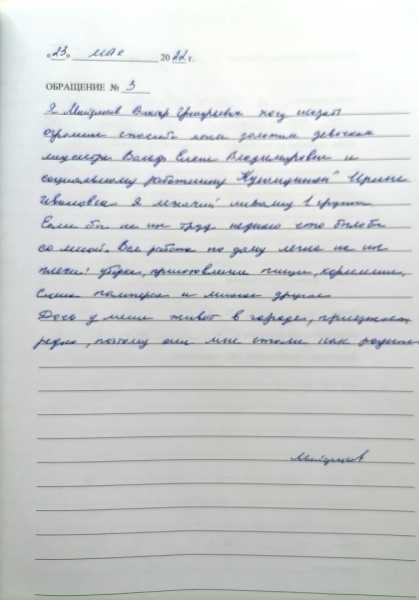 «23» мая 2022 г.
ОБРАЩЕНИЕ № 3
Я Григорьевич хочу сказать
огромное спасибо моим золотым девочкам
Елене Владимировне и
социальному работнику Ирине
Ивановне. Я лежачий инвалид 1 группы
Если бы не их труд неднаю что было бы
со мной. Вся работа по дому легла на их
плечи: уборка, приготовление пищи, кормление,
смена памперса и многое другое
Дочь у меня живёт в городе, приезжает
редко, поэтому они мне стали как родные